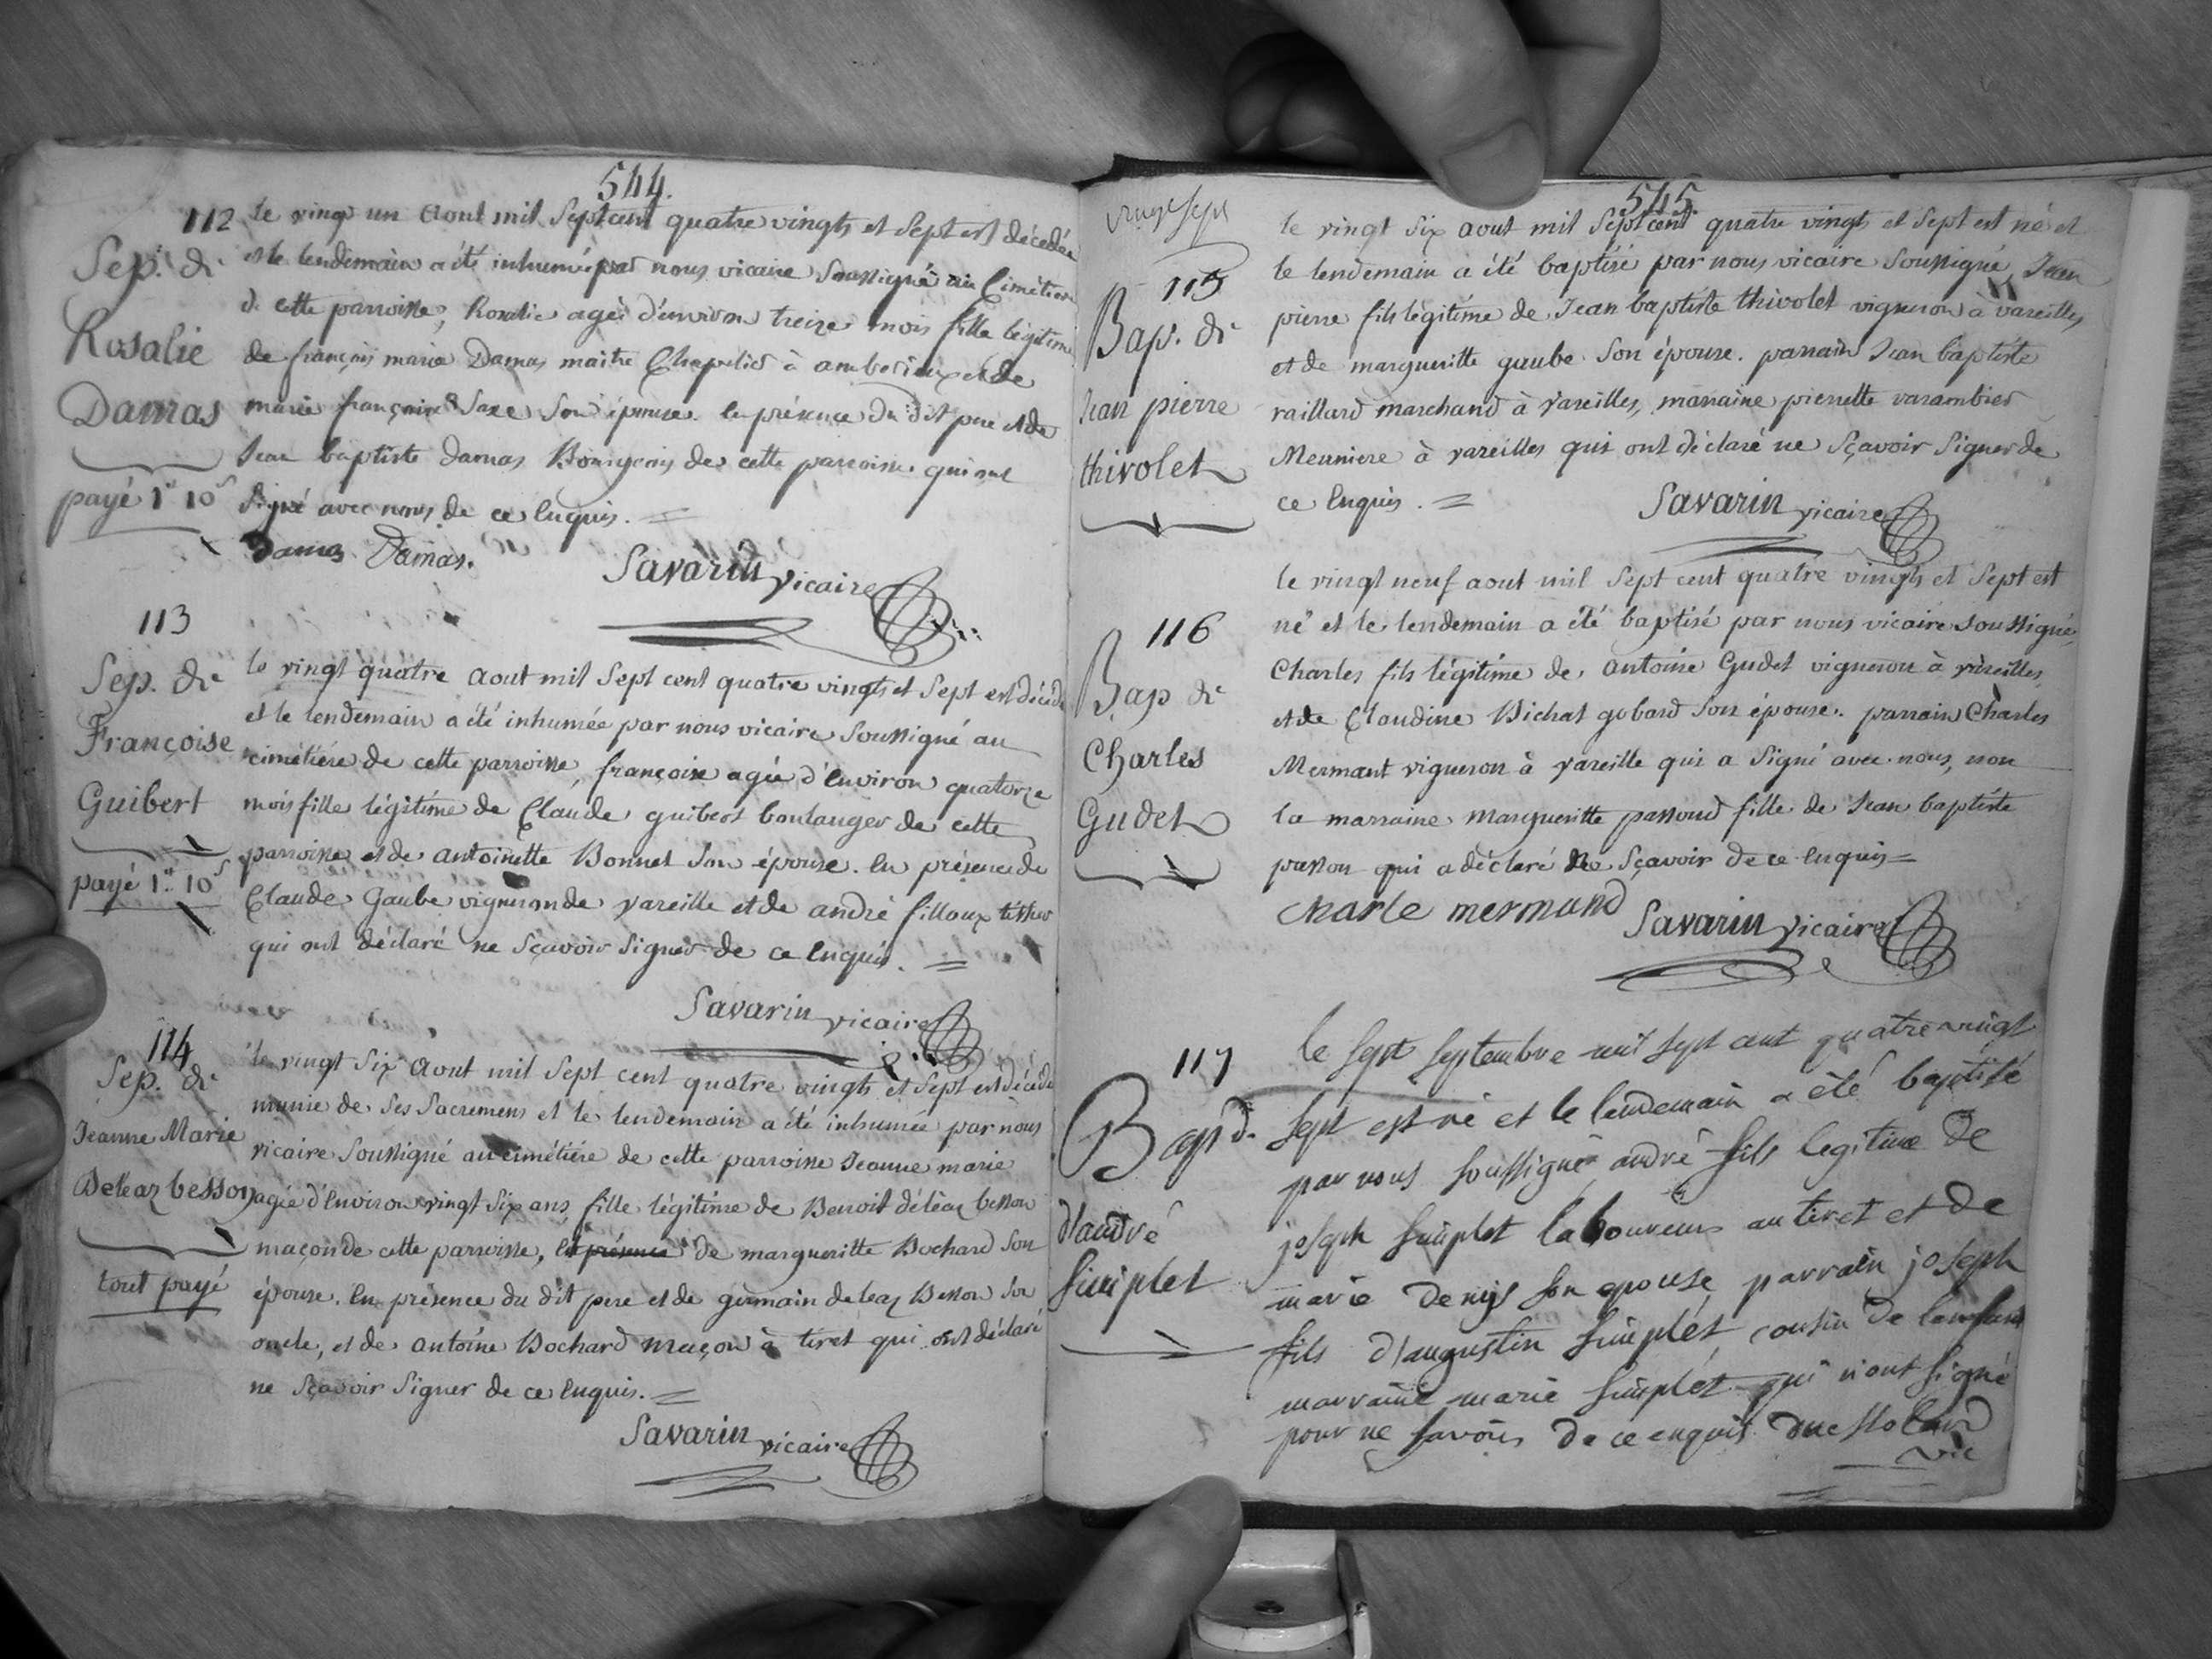 544.
112
Sep. de
Rosalie
Damas
payé 1# 10s
le vingt un aout mil sept cent quatre vingts et sept est décédée
et le lendemain a été inhumée par nous vicaire soussigné au Cimétiere
de cette parroisse, Rosalie agée d'environ treize mois fille légitime
de françois marie Damas maitre Chapelier à amberieux et de
marie françoise Saxe son épouse. en présence du dit pere et de
Jean baptiste damas Bourgeois de cette parroisse qui ont
signé avec nous de ce enquis.
Damas Damas.
Savarin vicaire
113
Sep. de
Françoise
Guibert
payé 1# 10s
le vingt quatre aout mil sept cent quatre vingts et sept est décédée
et le lendemain a été inhumée par nous vicaire soussigné au
cimétiére de cette parroisse, françoise agée d'environ quatorze
mois fille légitime de Claude guibert boulanger de cette
parroisse et de antoinette Bonnet son épouse. en présence de
Claude Gaube vigneron de vareille et de andré filloux
qui ont déclaré ne sçavoir signer de ce enquis.
Savarin vicaire
114
Sep. de
Jeanne Marie
Deleaz besson
tout payé
le vingt six aout mil sept cent quatre vingts et sept est décédée
munie de ses sacremens et le lendemain a été inhumée par nous
vicaire soussigné au cimétiére de cette parroisse Jeanne marie
agée d'environ vingt six ans, fille légitime de Benoit déléaz besson
maçon de cette parroisse, et de margueritte Bochard son
épouse. en présence du dit pere et de germain deleaz Besson son
oncle, et de antoine Bochard maçon à tiret qui ont déclaré
ne sçavoir signer de ce enquis.
Savarin vicaire
545.
vingt sept
115
Bap. de
Jean pierre
thivolet
le vingt six aout mil sept cent quatre vingts et sept est né et
le lendemain a été baptisé par nous vicaire soussigné Jean
pierre fils légitime de Jean baptiste thivolet vigneron à vareilles
et de margueritte gaube son épouse. parrain Jean baptiste
raillard marchand à vareilles, marraine pierrette varambier
Meuniere à vareilles qui ont déclaré ne sçavoir signer de
ce enquis.
Savarin vicaire
116
Bap de
Charles
Gudet
le vingt neuf aout mil sept cent quatre vingts et sept est
né et le lendemain a été baptisé par nous vicaire soussigné
Charles fils légitime de antoine Gudet vigneron à vareilles
et de Claudine Bichat gobard son épouse. parrain Charles
Mermant vigneron à vareille qui a signé avec nous, non
la marraine margueritte passoud fille de Jean baptiste
passou qui a déclaré ne sçavoir de ce enquis
charle mermand
Savarin vicaire
117
Bap d.
d'andré
simplet
le sept septembre mil sept cent quatre vingt
sept est né et le lendemain a été baptisé
par nous soussigné andré fils legitime de
joseph simplet laboureur au tiret et de
marie denys son epouse parrain joseph
fils d'augustin simplet cousin de lenfant
marraine marie simplet qui n'ont signé
pour ne savoir de ce enquis
vic